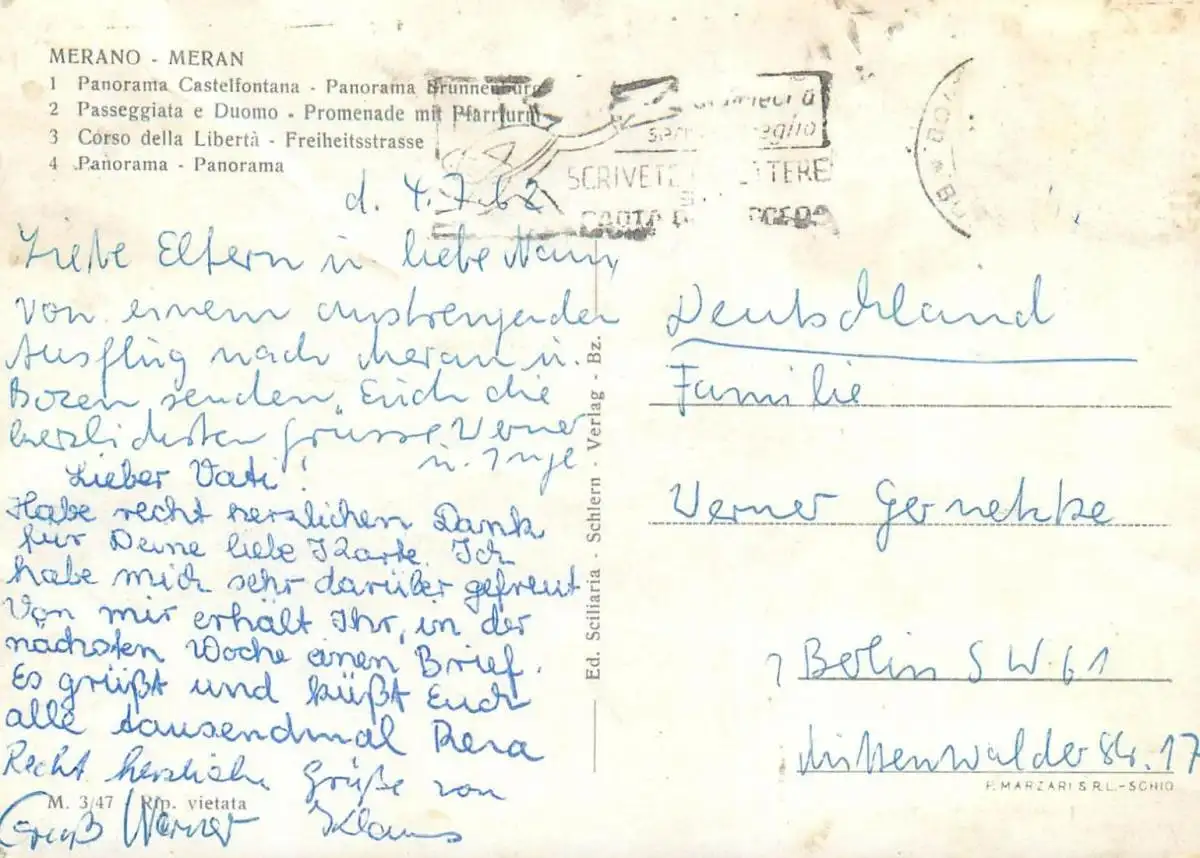 MERANO - MERAN
1 Panorama Castelfontana - Panorama Brunnenburg
2 Passeggiata e Duomo - Promenade mit Pfarrturm
3 Corso della Libertà - Freiheitsstrasse
4 Panorama - Panorama
SCRIVETE LETTERE
d. 4.7.62
Liebe Eltern u liebe
von einem anstrengenden
Ausflug nach Meran u.
Bozen senden Euch die
herzlichsten Grüsse, Werner
u. Inge
Lieber Vati!
Habe recht herzlichen Dank
für Deine liebe Karte. Ich
habe mich sehr darüber gefreut
Von mir erhält Ihr, in der
nächsten Woche einen Brief.
Es grüßt und küßt Euch
alle tausendmal
Recht herzliche Grüße von
Klaus
Gruß Werner
M. 3/47 Rip. vietata
Ed. Sciliaria - Schlern - Verlag - Bz.
Deutschland
Familie
Werner
1 Berlin SW. 61
Mittenwalder Str. 17
P. MARZARI S.R.L.-SCHIO